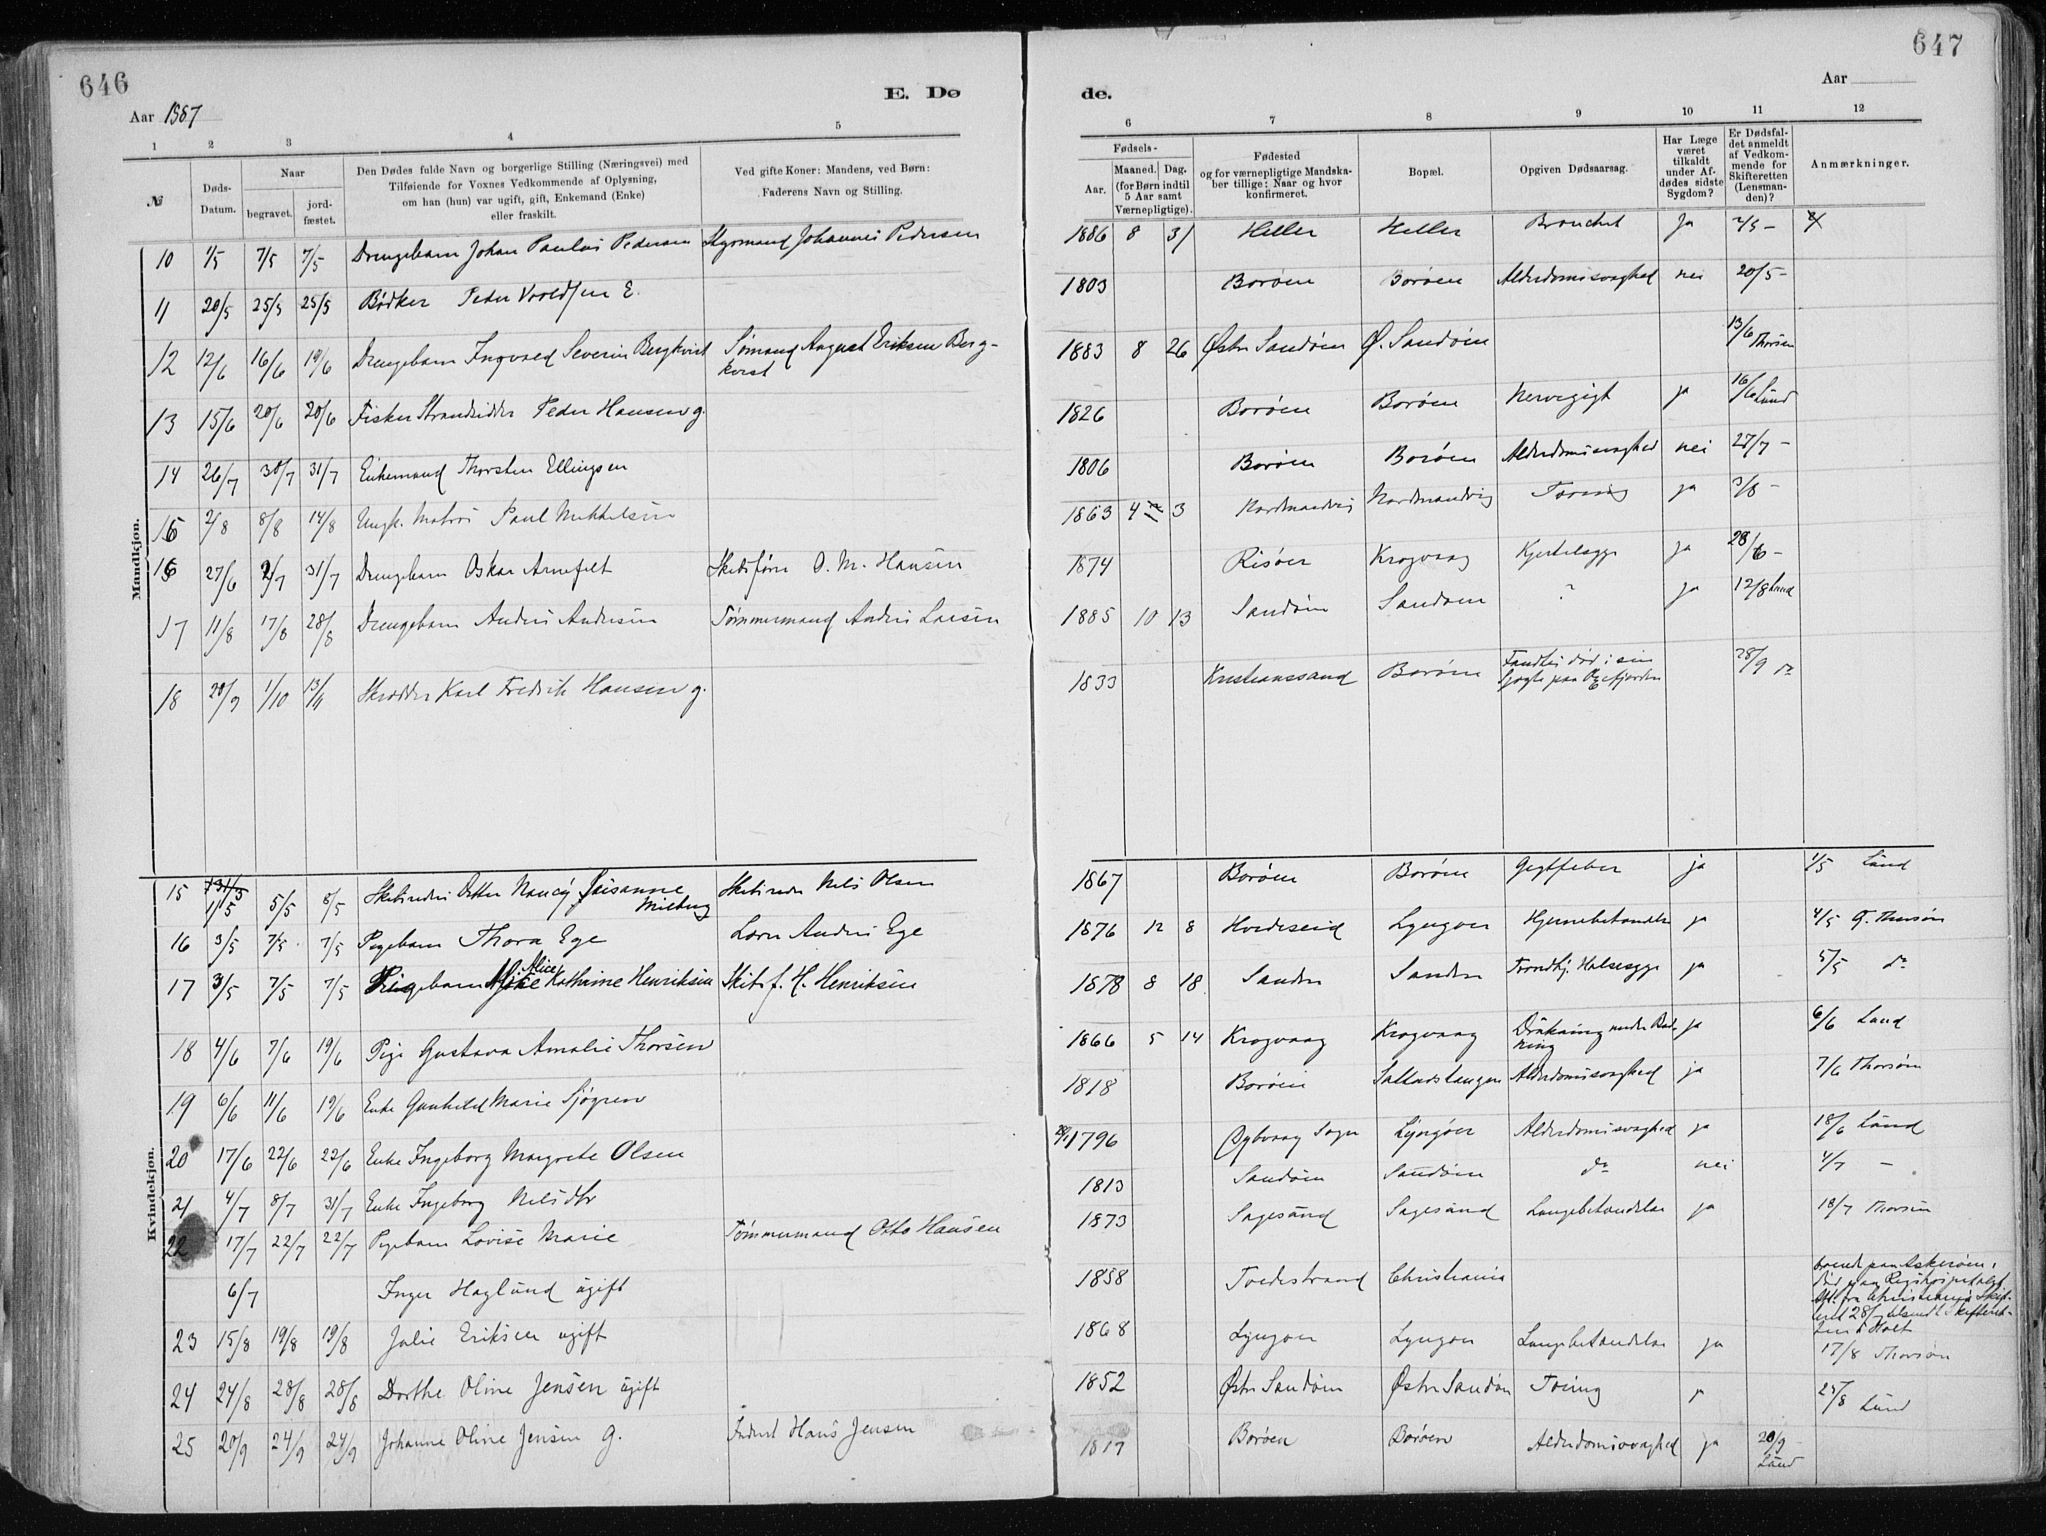 646
647
E. Dø
de.
Aar 1887
Aar
1 2 3 4 5 6 7 8 9 10 11 12
№
Døds-Datum.
Naar
begravet.
jord-fæstet.
Den Dødes fulde Navn og borgerlige Stilling (Næringsvei) med
Tilføiende for Voxnes Vedkommende af Oplysning,
om han (hun) var ugift, gift, Enkemand (Enke)
eller fraskilt.
Ved gifte Koner: Mandens, ved Børn:
Faderens Navn og Stilling.
Fødsels-
Aar.
Maaned.
Dag.
(for Børn indtil
5 Aar samt
Værnepligtige).
Fødested
og for værnepligtige Mandska-
ber tillige: Naar og hvor
konfirmeret.
Bopæl.
Opgiven Dødsaarsag.
Har Læge
været
tilkaldt
under Af-
dødes sidste
Sygdom?
Er Dødsfal-
det anmeldt
af Vedkom-
mende for
Skifteretten
(Lensman-
den)?
Anmærkninger.
Mandkjøn.
10 1/5 7/5 7/5 Drengebarn Johan Paulus Pedersen Styrmand Johannes Pedersen 1886 8 31 Heller Heller Bronchit Ja 2/5 –
11 20/5 25/5 25/5 Bødker Peder E. 1803 Borøen Borøen Alderdomssvaghed nei 20/5 –
12 12/6 16/6 19/6 Drengebarn Ingvald Severin Bergkvist Sømand August Eriksen Berg-
kvist 1883 8 26 Østre Sandøen Ø. Sandøen 13/6 Thorsen
13 15/6 20/6 20/6 Fisker Strandsidder Peder Hansen g. 1826 Borøen Borøen Nervegigt ja 16/6 Lund
14 26/7 30/7 31/7 Enkemand Thorsten Ellingsen 1806 Borøen Borøen Alderdomssvaghed nei 27/7 –
15 2/8 8/8 14/8 Ungk. Matros Paul Mikkelsen 1863 4 3 Nordmandvig Nordmandvig Tæring ja 3/8 –
16 27/6 2/7 31/7 Drengebarn Oskar Arnefelt Skibsfører O. M. Hansen 1874 Risøer Krogvaag Kjertelsyge ja 28/6 –
17 11/8 17/8 28/8 Drengebarn Anders Andersen Tømmermand Anders Larsen 1885 10 13 Sandøen Sandøen ? ja 12/8 Lund
18 20/9 1/10 13/11 Skrædder Karl Fredrik Hansen g. 1833 Kristianssand Borøen Fandtes død i sin
Jagt paa 28/9 do
Kvindekjøn.
15 1/5 5/5 8/5 Skibsreders Datter Nancy Susanne
Milberg Skibsreder Nils Olsen 1867 Borøen Borøen Gigtfeber ja 1/5 Lund
16 3/5 7/5 7/5 Pigebarn Thora Ege Lærer Anders Ege 1876 12 8 Hvideseid Lyngøer Hjernebetændelse ja 4/5 Thorsen
17 3/5 7/5 7/5 Pigebarn Alice Kathrine Henriksen Skibsf. H. Henriksen 1878 8 18 Sanden Sanden Trondhj. Halssyge ja 5/5 do
18 4/6 7/6 19/6 Pige Gustava Amalie Thorsen 1866 5 14 Krogvaag Krogvaag Drukning under Bad-
ning ja 6/6 Lund
19 6/6 11/6 19/6 Enke Gunhild Marie Sjøgren 1818 Borøen Sallestangen Alderdomssvaghed ja 7/6 Thorsen
20 17/6 22/6 22/6 Enke Ingeborg Margrete Olsen 1796 Sogn Lyngøer Alderdomssvaghed ja 18/6 Lund
21 4/7 8/7 31/7 Enke Ingeborg Nilsdtr 1813 Sandøen Sandøen do nei 4/7 –
22 17/7 22/7 22/7 Pigebarn Lovise Marie Tømmermand Otto Hansen 1873 Sagesund Sagesund Lungebetændelse ja 18/7 Thorsen
6/7 Inger Haglund ugift 1858 Tvedestrand Christiania boende paa Askerøen,
død paa Rigshospitalet
23 15/8 19/8 19/8 Julie Eriksen ugift 1868 Lyngøer Lyngøer Lungebetændelse ja 17/8 Thorsen
24 24/8 28/8 28/8 Dorthe Oline Jensen ugift 1852 Østre Sandøen Østre Sandøen Tæring 25/8 Lund
25 20/9 24/9 24/9 Johanne Oline Jensen g. Hans Jensen 1817 Borøen Borøen Alderdomssvaghed ja 20/9 Lund